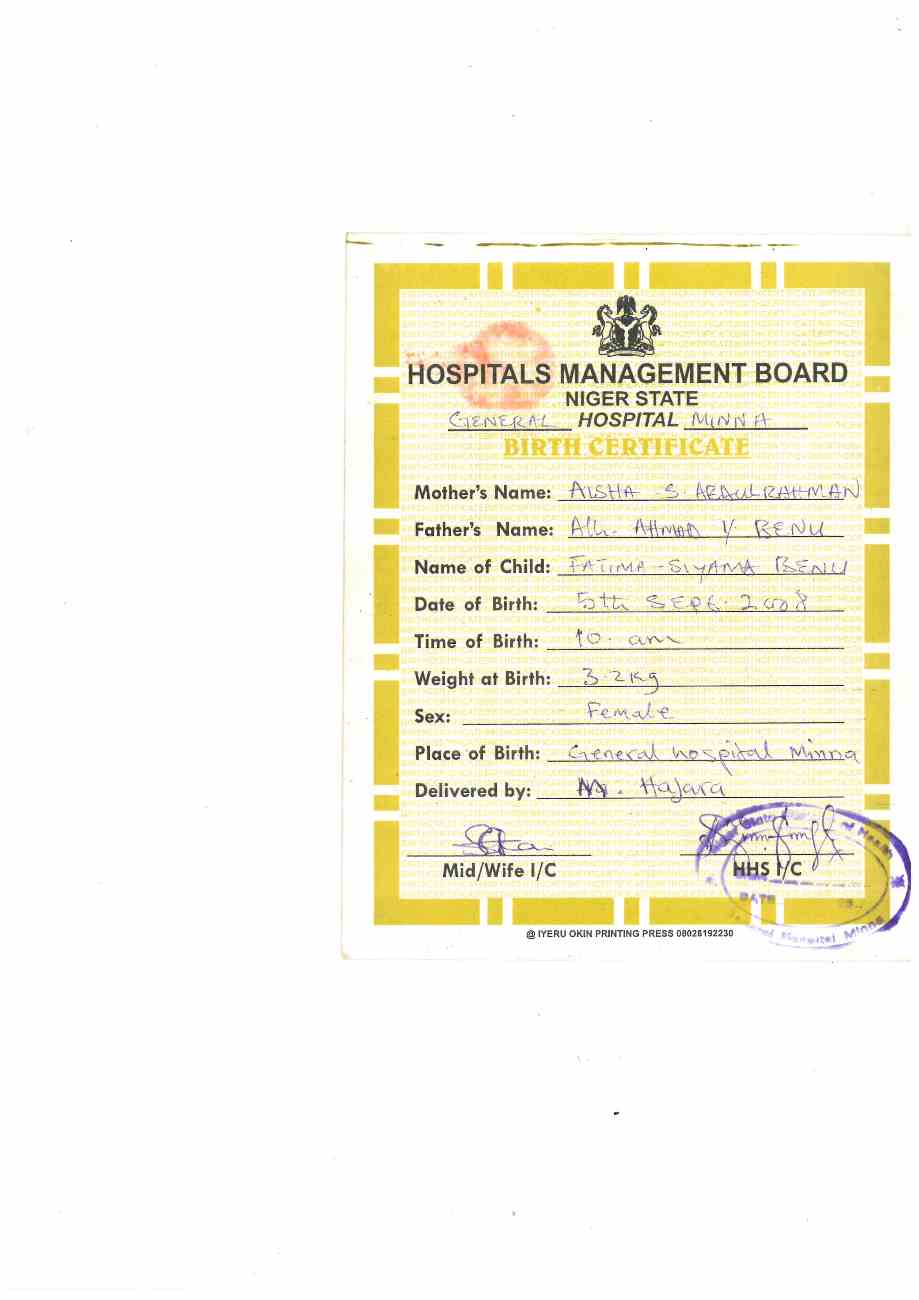 HOSPITALS MANAGEMENT BOARD
NIGER STATE
GENERAL HOSPITAL MINNA
BIRTH CERTIFICATE
Mother's Name: AISHA S. ABDULRAHMAN
Father's Name: Alh. AHMAD Y BENU
Name of Child: FATIMA-SIYAMA BENU
Date of Birth: 5th SEPt. 2008
Time of Birth: 10. am
Weight at Birth: 3.2Kg
Sex: Female
Place of Birth: General hospital Minna
Delivered by: M. Hajara
Mid/Wife I/C HHS I/C
DATE
General Hospital Minna
@ IYERU OKIN PRINTING PRESS 08028192230